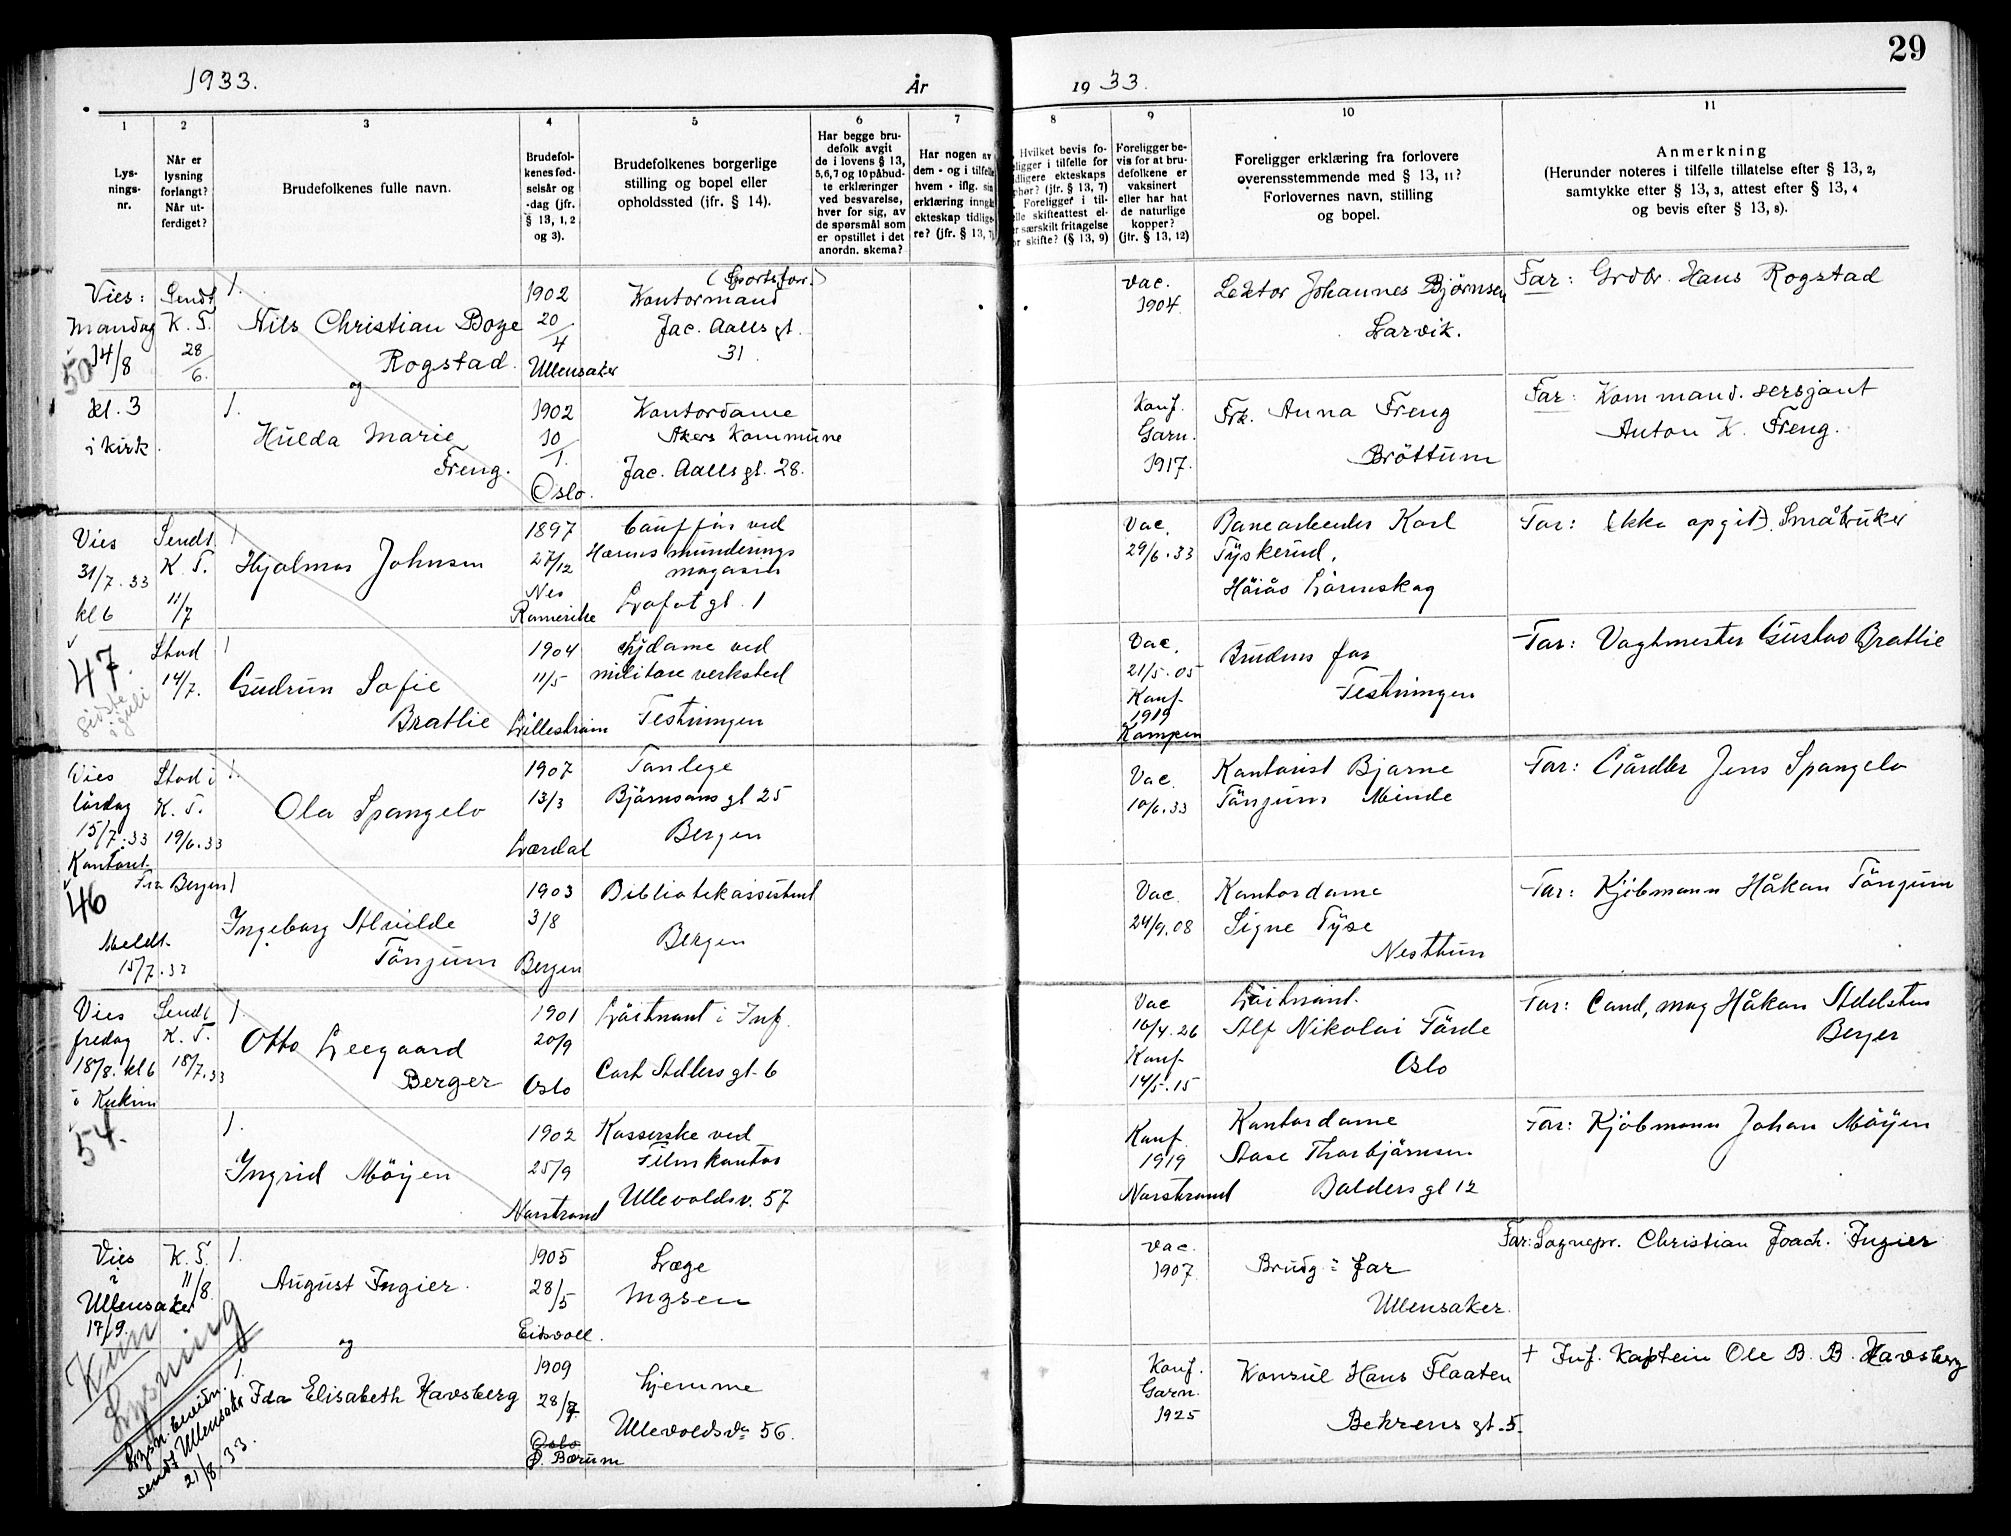 29
1933.
År
19 33.
1
2
3
4
5
6
7
8
9
10
11
Lys-
nings-
nr.
Når er
lysning
forlangt?
Når ut-
ferdiget?
Brudefolkenes fulle navn.
Brudefol-
kenes fød-
selsår og
-dag (jfr.
§ 13, 1, 2
og 3).
Brudefolkenes borgerlige
stilling og bopel eller
opholdssted (jfr. § 14).
Har begge bru-
defolk avgit
de i lovens § 13,
5,6,7 og 10 påbud-
te erklæringer
ved besvarelse,
hver for sig, av
de spørsmål som
er opstillet i det
anordn. skema?
Har nogen av
dem - og i tilfelle
hvem - iflg. sin
erklæring inngå
ekteskap tidlige
re? (jfr. § 13, 7)
Hvilket bevis fo-
religger i tilfelle for
tidligere ekteskaps
ophør? (jfr. § 13, 7)
Foreligger i til-
elle skifteattest el-
er særskilt fritagelse
or skifte? (§ 13, 9)
Foreligger be-
vis for at bru-
defolkene er
vaksinert
eller har hat
de naturlige
kopper?
(jfr. § 13, 12)
Foreligger erklæring fra forlovere
overensstemmende med § 13, 11?
Forlovernes navn, stilling
og bopel.
Anmerkning
(Herunder noteres i tilfelle tillatelse efter § 13, 2,
samtykke efter § 13, 3, attest efter § 13, 4
og bevis efter § 13, 8).
Vies:
mandag
14/8
50
kl. 3
i kirk.
Sendt
K. T.
28/6.
1.
Nils Christian Boye
Rogstad.
og
1902
20/4
Ullensaker
(Sportsforr.)
Kontormand
Jac. Aalls gt.
31.
vac.
1904
Lektor Johannes Björnsen
Larvik.
Far: Grdbr. Hans Rogstad
1.
Hulda Marie
Freng.
1902
10/1.
Oslo.
Kontordame
Akers Kommune
Jac. Aalls gt. 28.
Konf.
Garn.
1917.
Frk. Anna Freng
Bröttum
Far: Kommand. sersjant
Anton K. Freng.
Vies
31/7.33
kl 6
47.
sidste
i juli
Sendt
K. T.
11/7
1
Hjalmar Johnsen
1897
27/12
Nes
Romerike
Cauffør ved
Hærens munderings
magasin
Lofot gt. 1
Vac.
29/6.33
Banearbeider Karl
Tyskerud,
Höiås Lörenskog
Far: (Ikke opgit). Småbruker
Stad
14/7.
1
Gudrun Sofie
Brattlie
1904
11/5
Lilleström
Sydame ved
militære verksted
Festningen
Vac.
21/5.05
Konf.
1919
Kampen
Brudens far
Festningen
Far: Vagtmester Gustav Brattlie
Vies
lördag
15/7.33
Kontoret.
46
Meldt
15/7.33
Stad i
K. T.
19/6.33
Fra Bergen
1.
Ola Spangelo
1907
13/3
Lærdal
Tanlege
Björnsons gt 25
Bergen
Vac.
10/6.33
Kontorist Bjarne
Tönjum Minde
Far: Gårdbr Jens Spangelo
1
Ingeborg Alvilde
Tönjum
1903
3/8
Bergen
Bibliotekassistent
Bergen
Vac.
24/9.08
Kontordame
Signe Tyse
Nesttun
Far: Kjöbmann Håkon Tönjum
Vies
fredag
18/8. kl 6
i Kirken
54.
Sendt
K. T.
18/7.33
1.
Otto Leegaard
Berger
1901
20/9
Oslo
Löitnant i Inf.
Carl Adlers gt. 6
Vac
16/4.26
Konf.
14/5.15
Löitnant
Alf Nikolai Förde
Oslo
Far: Cand, mag Håkon Adelsten
Berger
1.
Ingrid Möyen
1902
25/9
Norstrand
Kasserske ved
Filmkontor
Ullevoldsv. 57
Konf.
1919
Norstrand
Kontordame
Aase Thorbjörnsen
Balders gt 12
Far: Kjöbmann Johan Möyen
Vies
i
Ullensaker
17/9.
K. T.
11/8.
1.
August Ingier.
og
1905
28/5
Eidsvoll.
Læge
Mysen
vac.
1907
Brudg: far
Ullensaker.
Far: Sognepr. Christian Joach. Ingier
Kun
Lysning
Lysn. bevidn.
sendt Ullensaker
21/8.33.
1.
Ida Elisabeth Havsberg
1909
28/7
Oslo
Ø. Bærum
hjemme
Ullevoldsv. 56.
Konf.
Garn.
1925
Konsul Hans Flaaten
Behrens gt. 5.
+ Inf. Kaptein Ole B. B. Havsberg